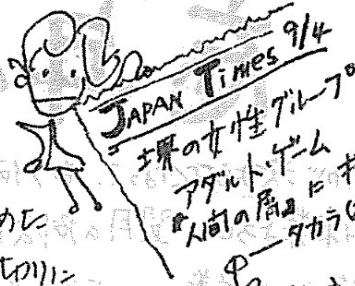 JAPAN TIMES 9/4
堺の女性グループ
アダルト・ゲーム
『人間の屑』に
タカラ
めに
切りに